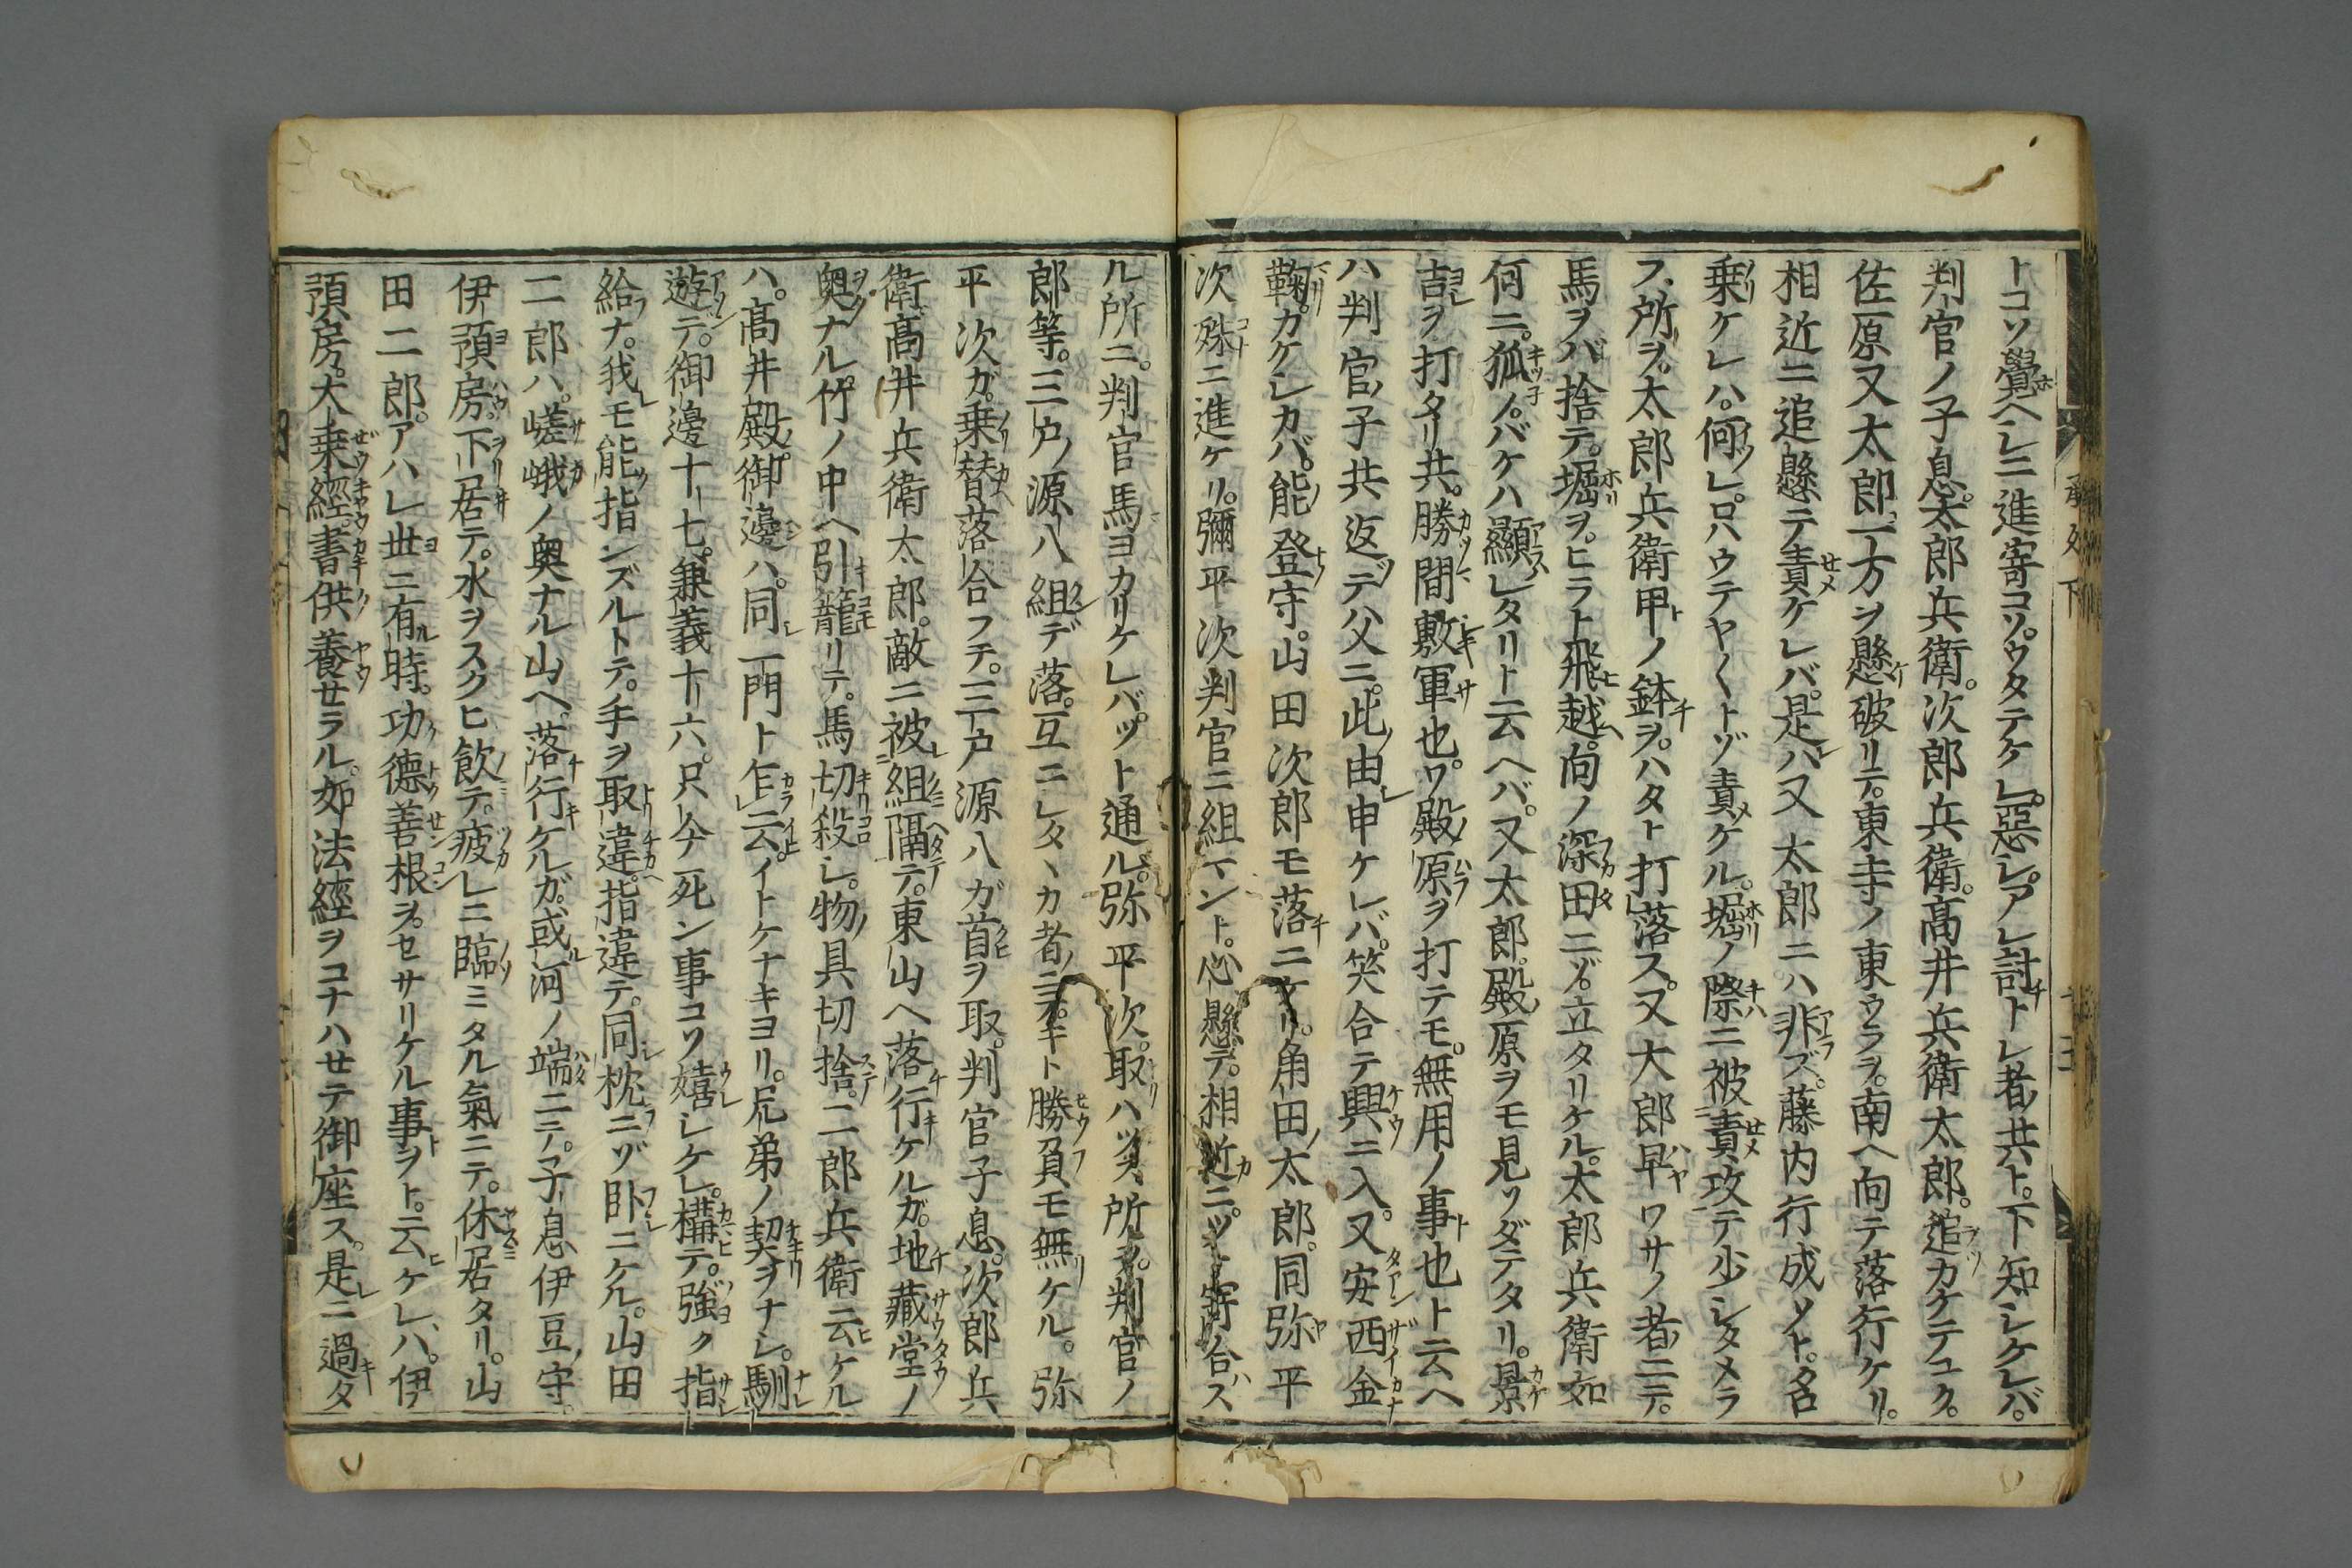 トコソ覺ヘシニ進寄コソウタテケレ。惡シアレ討トレ者共ト。下知シケレバ。
判官ノ子息。太郎兵衛。次郎兵衛。高井兵衛太郎。追カケテユク。
佐原又太郎。一方ヲ懸破リテ。東寺ノ東ウラヲ。南ヘ向テ落行ケリ。
相近ニ追懸テ責ケレバ。是ハ又太郎ニハ非ズ。藤内行成ソト。名
乗ケレハ。何レロハウテヤ〱トゾ責ケル。堀ノ際ニ被責攻テ少シタメラ
フ所ヲ。太郎兵衛甲ノ鉢ヲ。ハタト打落ス。又大郎早ワサノ者ニテ。
馬ヲバ捨テ。堀ヲ。ヒラト飛越。向ノ深田ニゾ。立タリケル。太郎兵衛如
何ニ。狐ノバケハ顯レタリト云ヘバ。又太郎。殿原ヲモ見ソダテタリ。景
吉ヲ打タリ共。勝間敷軍也。ワ殿原ヲ打テモ。無用ノ事也ト云ヘ
ハ判官子共返デ父ニ。此由申ケレバ。笑合テ興ニ入。又安西金
鞠。カケシカバ。能登守。山田次郎モ落ニケリ。角田太郎。同弥平
次殊ニ進ケリ。彌平次判官ニ組マント。心懸テ。相近ニツト寄合ス
ル所ニ。判官馬ヨカリケレバ。ツト通ル。弥平次。取ハヅス所ヲ。判官ノ
郎等。三戸源八組デ落。互ニシタヽカ者ニテ。キト勝負モ無ケル。弥
平次ガ。乗替落合フテ。三戸源八ガ首ヲ取。判官子息。次郎兵
衛高井兵衛太郎。敵ニ被組隔テ。東山ヘ落行ケルガ。地藏堂ノ
奥ナル竹ノ中ヘ引籠リテ。馬切殺シ。物具切捨。二郎兵衛云ケル
ハ。高井殿。御邊ハ。同一門ト乍云。イトケナキヨリ。兄弟ノ契ヲナシ。馴
遊テ。御邊十七。兼義十六。只今死ン事コソ嬉シケレ。構テ。強ク指
給ナ。我モ能指ンズルトテ。手ヲ取違。指違テ。同枕ニゾ臥ニケル。山田
二郎ハ。嵯峨ノ奥ナル山ヘ。落行ケルガ。或河ノ端ニテ。子息伊豆守。
伊預房。下居テ。水ヲスクヒ飲テ。疲レニ臨ミタル氣ニテ。休居タリ。山
田二郎。アハレ世ニ有時。功德善根ヲ。セサリケル事ヲト。云ケレハ。伊
預房。大乗經。書供養セラル。如法經ヲコナハセテ御座ス。是ニ過タ